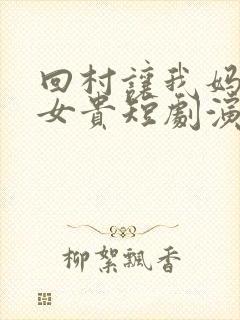 回村讓我妈
女贵短劇演
柳絮飄香